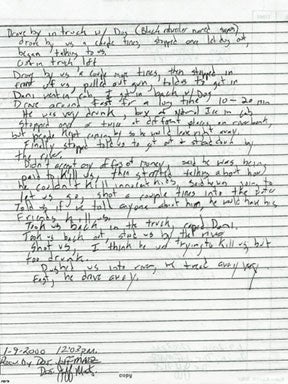 Drove by in truck w/ Dog (Black rottweiler named
drove by us a couple times, stopped and let dog out,
began talking to us.
Got in truck left
Drove by us a couple more times, then stopped in
front of us pulled out gun, told us to get in
Dani in back w/ Dog
Drove around fast for a long time 10-20 min
He was very drunk, box of Natural Ice in
stopped once or twice at different places in riverbank,
but people kept coming by so he would leave right away.
Finally stopped told us to get out & stand down by
the river.
Didn't accept any offers of money, said he was being
paid to kill us, then started talking about how
he couldn't kill innocent kids, said was going to
let us go, shot a couple times into the
Told us if we told anyone about him, he would have his
Friends kill us.
Took us back in the truck raped Dani.
Took us back out by the river
Shot us, I think he was trying to kill us but
too drunk.
Pushed us into river, we
he drove away.
1-9-2000 12:03 pm.
By Det.
Det. Jeff
copy